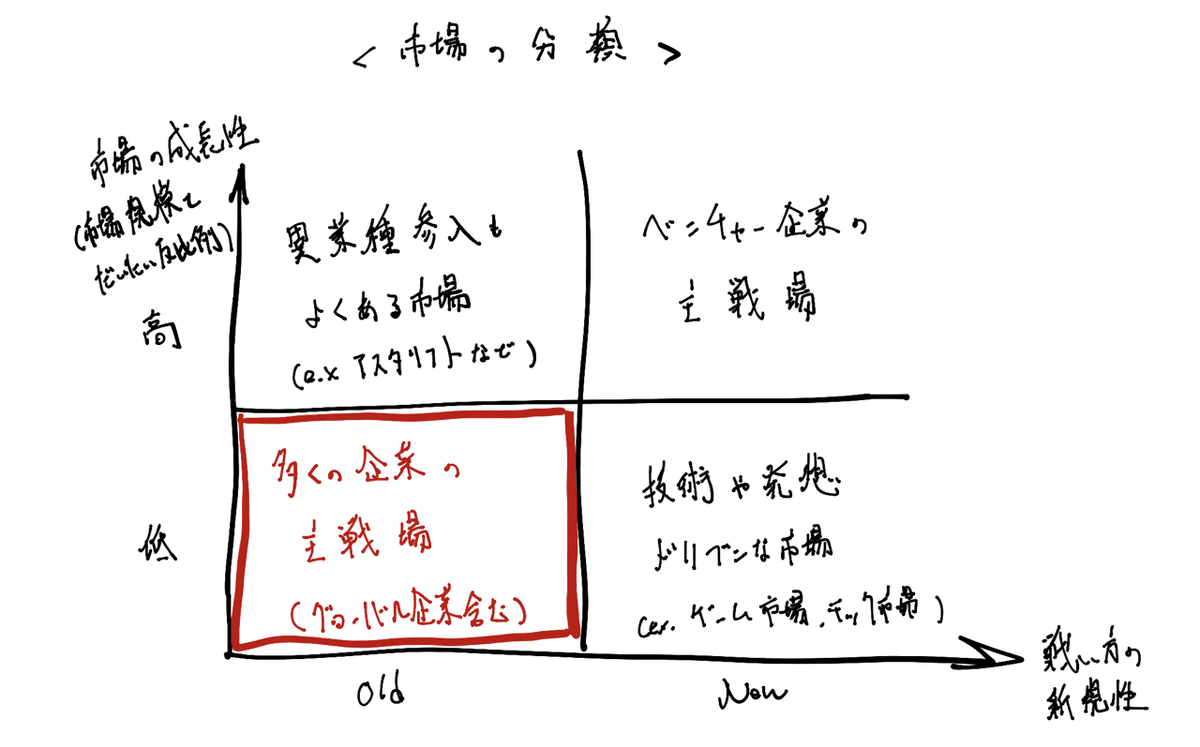 < 市場の分類 >
市場の成長性
(市場規模と
だいたい反比例)
高
異業種参入も
よくある市場
(e.x アスタリフトなど)
ベンチャー企業の
主戦場
低
多くの企業の
主戦場
(グローバル企業含む)
技術や発想
ドリブンな市場
(ex. ゲーム市場、テック市場)
Old
New
戦い方の
新規性